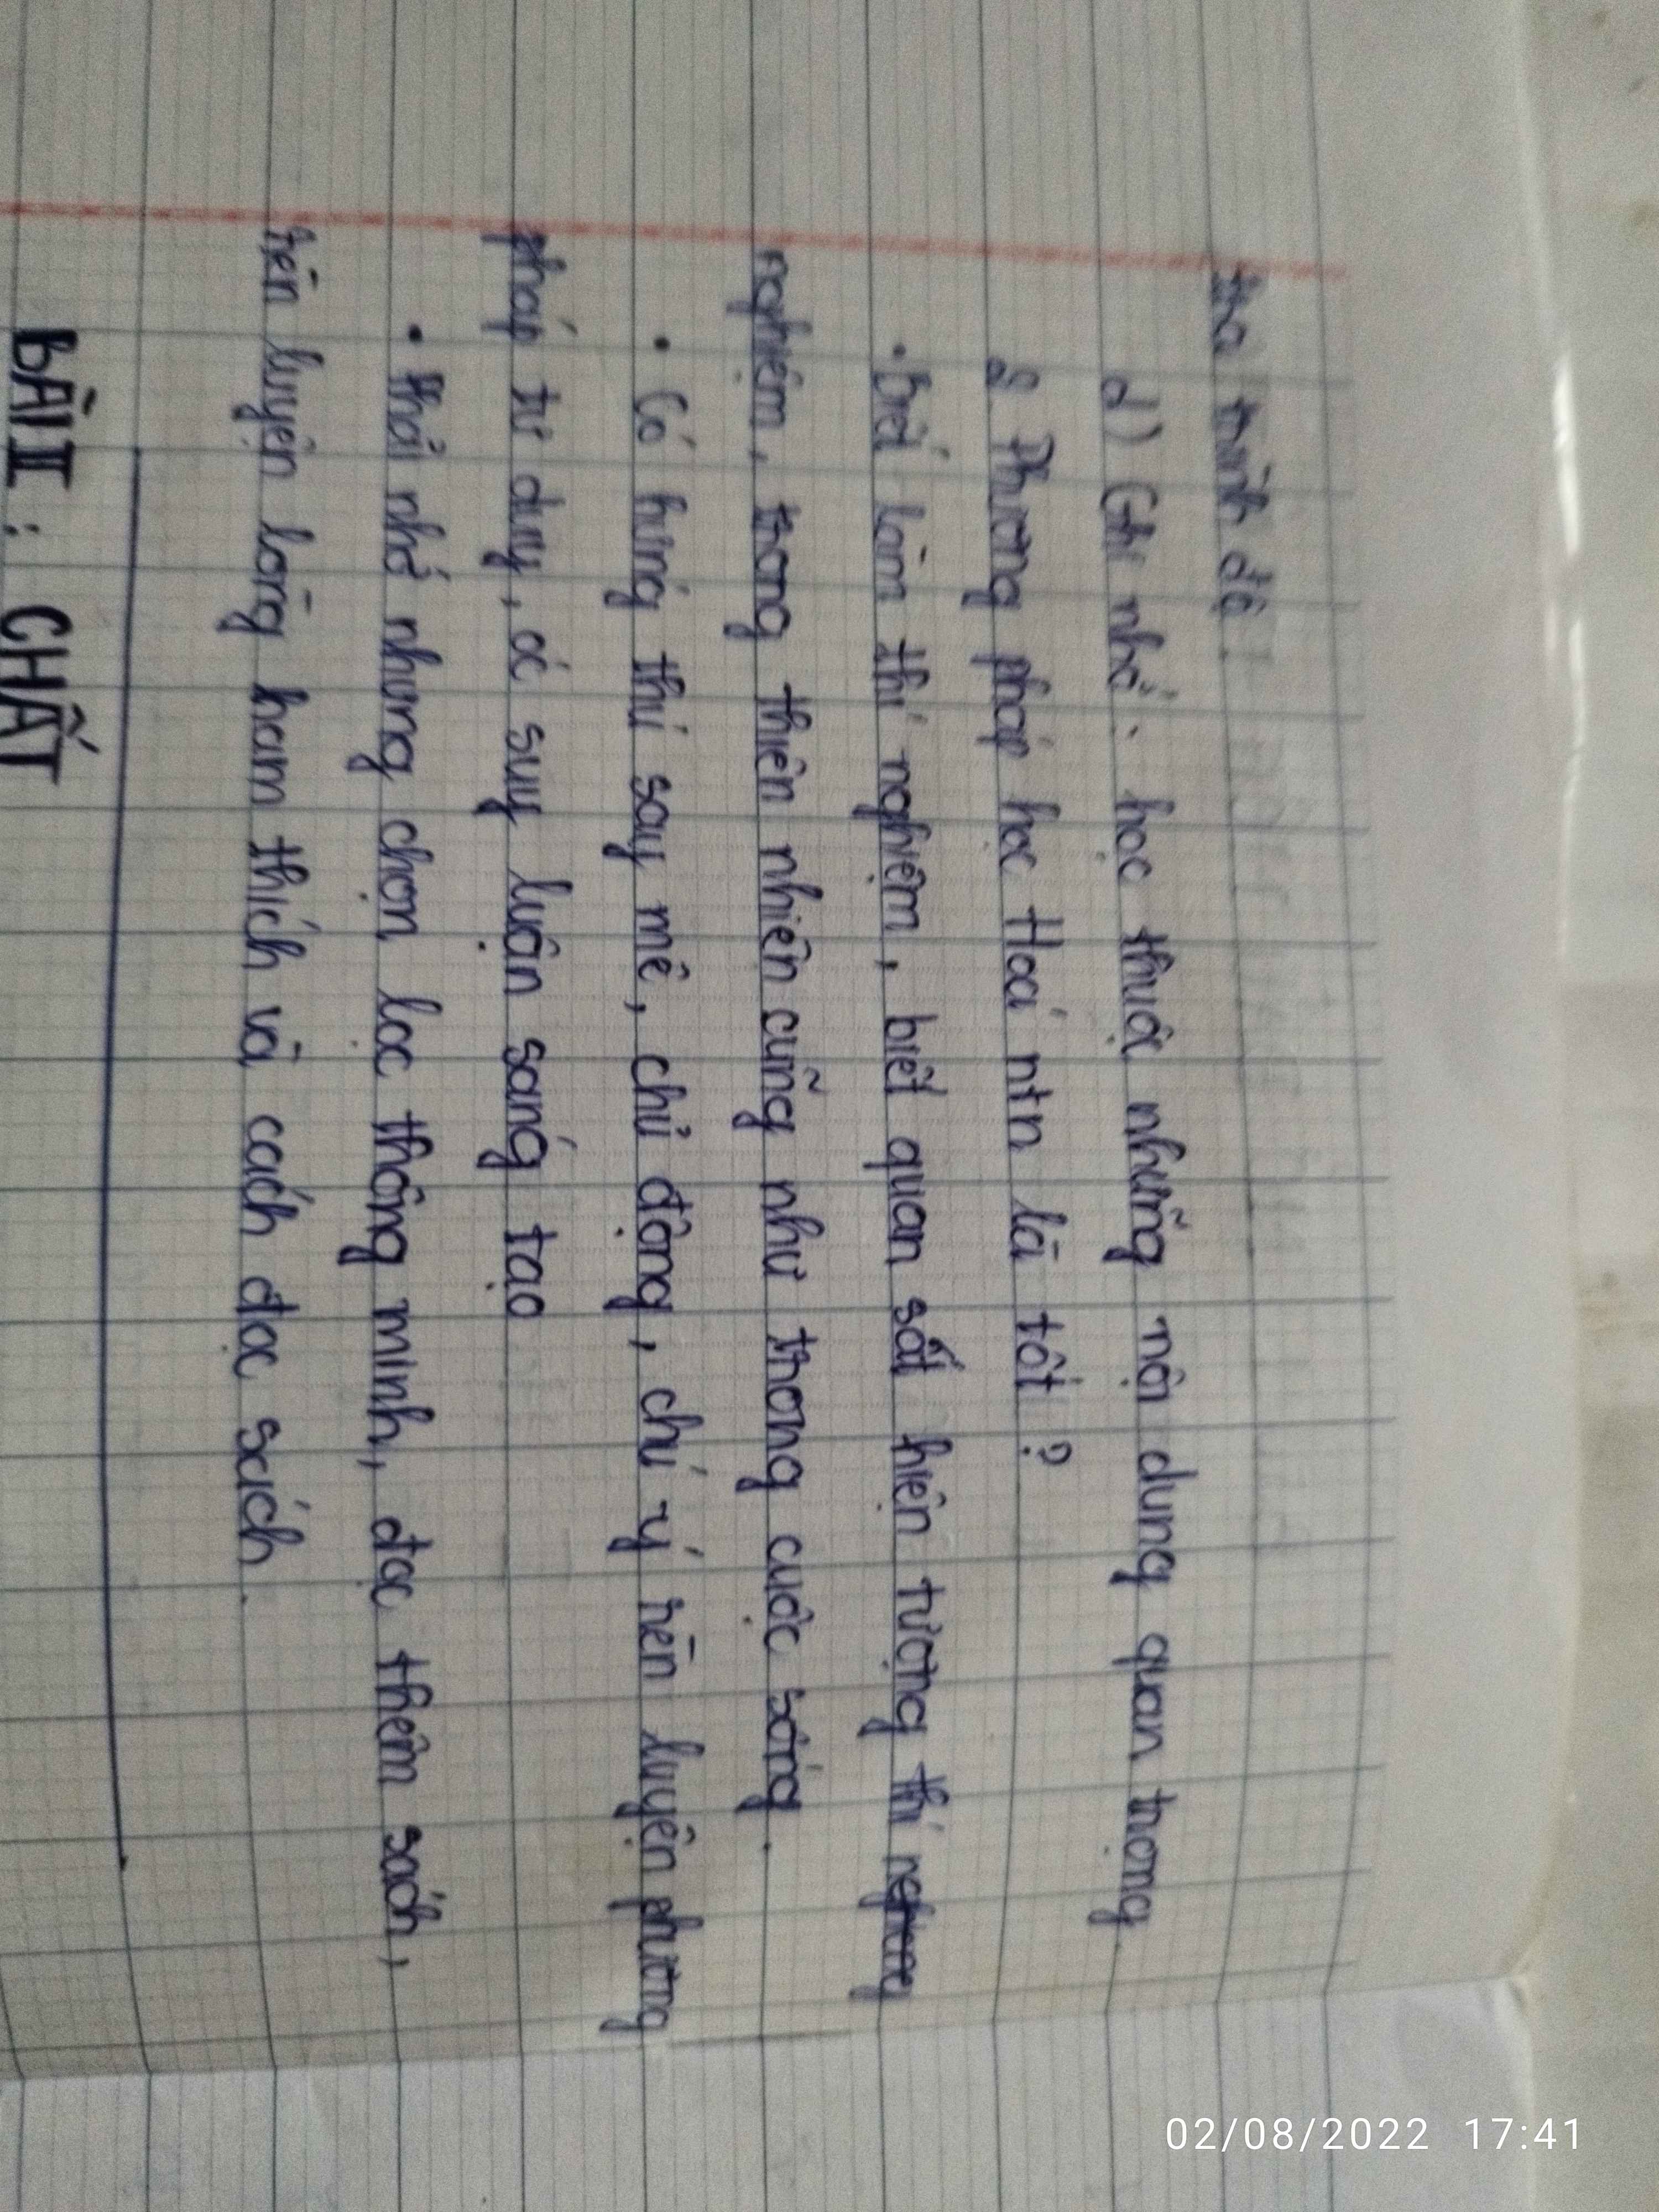 hoá trình độ.
d) Ghi nhớ: học thuộc những nội dung quan trọng
2 Phương pháp học Hoá ntn là tốt ?
• Biết làm thí nghiệm, biết quan sát hiện tượng thí
nghiệm, trong thiên nhiên cũng như trong cuộc sống.
• Có hứng thú say mê, chủ động, chú ý rèn luyện phương
pháp tư duy, óc suy luận sáng tạo
• Phải nhớ nhưng chọn lọc thông minh, đọc thêm sách,
rèn luyện lòng ham thích và cách đọc sách.
BÀI II : CHẤT
02/08/2022 17:41